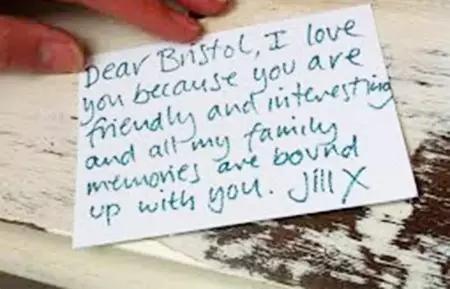 Dear Bristol, I love
you because you are
friendly and interesting
and all my family
memories are bound
up with you. Jill X